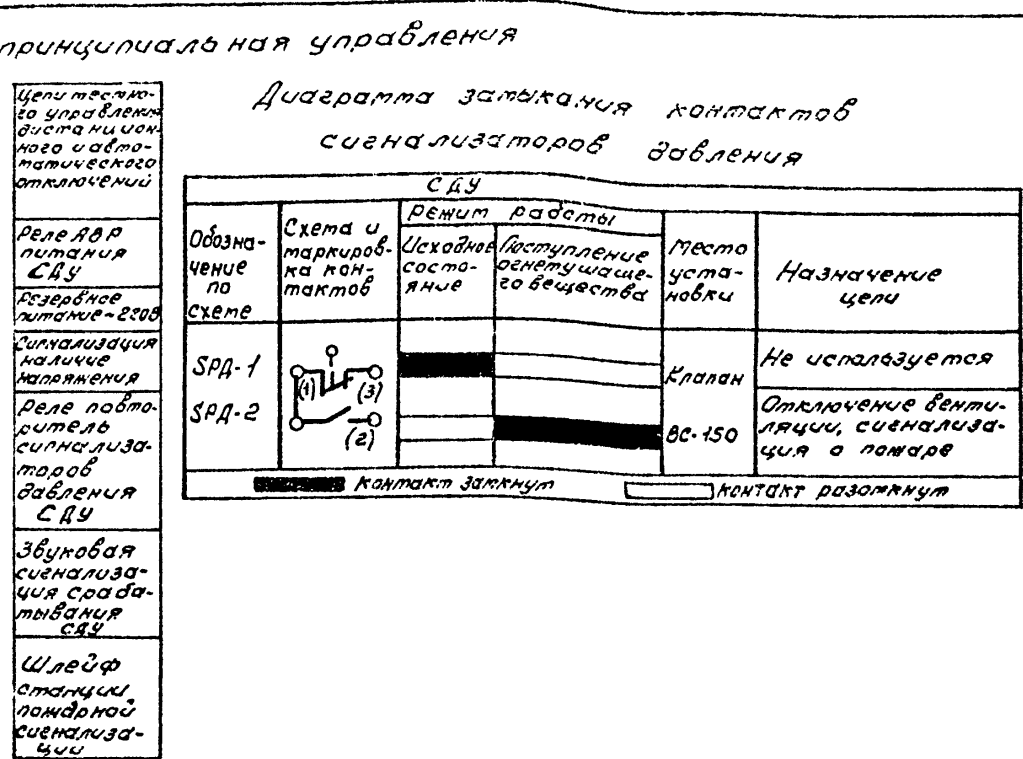 принципиальная управления
Цепи местно-
го управления
дистанцион-
ного и авто-
матического
отключений
Реле АВР
питания
СДУ
Резервное
питание ~220В
Сигнализация
наличие
напряжения
Реле повто-
ритель
сигнализа-
торов
давления
СДУ
Звуковая
сигнализа-
ция сраба-
тывания
СДУ
Шлейф
станции
пожарной
сигнализа-
ции
Диаграмма замыкания контактов
сигнализаторов давления
СДУ
Обозна-
чение
по
схеме
Схема и
маркиров-
ка кон-
тактов
Режим работы
Исходное
состо-
яние
Поступление
огнетушаще-
го вещества
Место
уста-
новки
Назначение
цепи
SРД-1
SРД-2
(1)
(3)
(2)
Клапан
ВС-150
Не используется
Отключение венти-
ляции, сигнализа-
ция о пожаре
контакт замкнут
контакт разомкнут